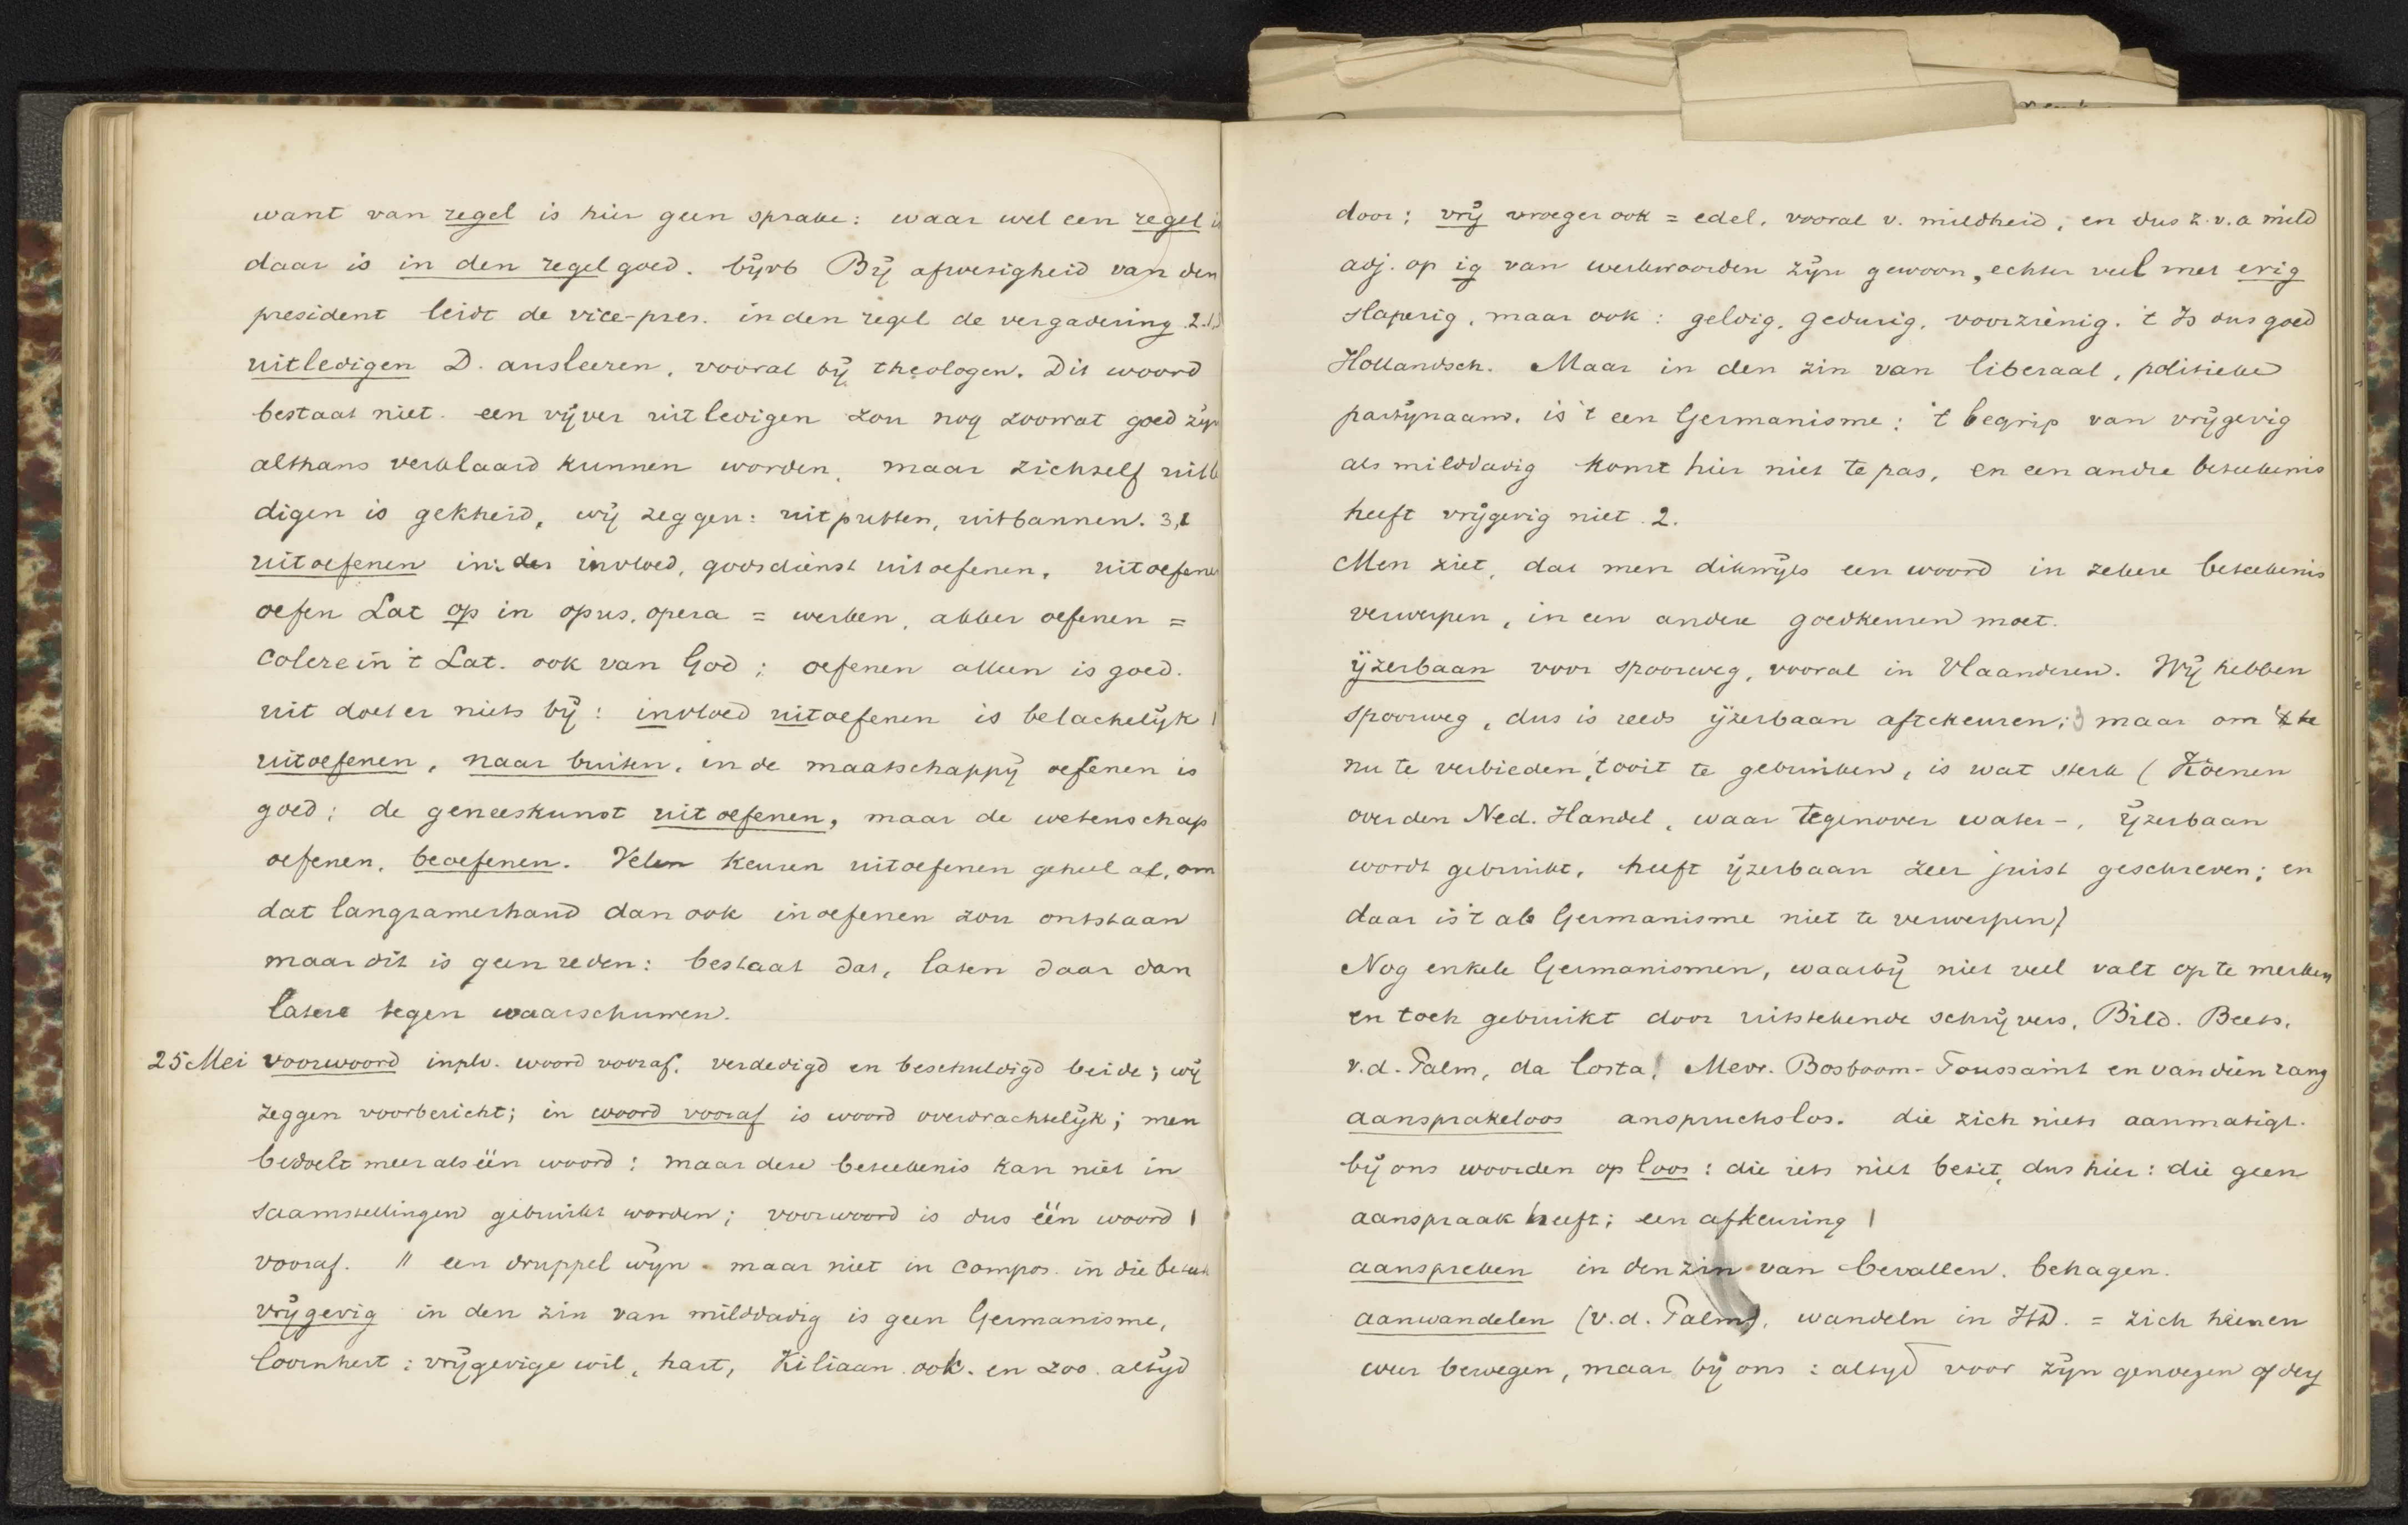 want van regel is hier geen sprake: waar wel een regel is
daar is in den regel goed. bijvb Bij afwesigheid van den
president leidt de vice-pres. in den regel de vergadering 2.1.
uitledigen D. ausleeren, vooral bij theologen. Dit woord
bestaat niet. een vijver uitledigen zou nog zoowat goed zijn
althans verklaard kunnen worden, maar zichzelf uitle
digen is gekheid, wij zeggen: uitputten, uitbannen. 3,1
uitoefenen in: invloed, godsdienst uitoefenen, uitoefenen
oefen Lat op in opus, opera = werken, akker oefenen =
colere in 't Lat. ook van God; oefenen alleen is goed.
uit doet er niets bij: invloed uitoefenen is belachelijk!
uitoefenen, naar buiten, in de maatschappij oefenen is
goed; de geneeskunst uitoefenen, maar de wetenschap
oefenen, beoefenen. Velen keuren uitoefenen geheel af, om
dat langzamerhand dan ook inoefenen zou ontstaan
maar dit is geen reden: bestaat dat, laten daar dan
latere tegen waarschuwen.
25 Mei voorwoord inplv. woord vooraf, verdedigd en beschuldigd beide; wij
zeggen voorbericht; in woord vooraf is woord overdrachtelijk; men
bedoelt meer als één woord: maar deze beteekenis kan niet in
saamstellingen gebruikt worden; voorwoord is dus één woord |
vooraf. || een druppel wijn. maar niet in compos. in die beteek
vrijgevig in den zin van milddadig is geen Germanisme,
Coornhert: vrijgevige wil, hart, Kiliaan ook. en zoo altijd
door; vrij vroeger ook = edel, vooral v. mildheid, en dus z.v.a mild
adj. op ig van werkwoorden zijn gewoon, echter veel met erig
slaperig, maar ook: geldig, gedurig, voorzienig. 't Is dus goed
Hollandsch. Maar in den zin van liberaal, politieke
partijnaam, is 't een Germanisme; 't begrip van vrijgevig
als milddadig komt hier niet te pas, en een andre beteekenis
heeft vrijgevig niet. 2.
Men ziet, dat men dikwijls een woord in zekere beteekenis
verwerpen, in een andere goedkeuren moet.
ijzerbaan voor spoorweg, vooral in Vlaanderen. Wij hebben
spoorweg, dus is reeds ijzerbaan aftekeuren; 3 maar om
nu te verbieden, 't ooit te gebruiken, is wat sterk (Koenen
over den Ned. Handel, waar tegenover water-, ijzerbaan
wordt gebruikt, heeft ijzerbaan zeer juist geschreven; en
daar is 't als Germanisme niet te verwerpen)
Nog enkele Germanismen, waarbij niet veel valt op te merken
en toch gebruikt door uitstekende schrijvers, Bild. Beets,
v.d. Palm, da Costa, Mevr. Bosboom-Toussaint en van dien rang
aansprakeloos anspruchslos. die zich niets aanmatigt.
bij ons woorden op loos: die iets niet besit, dus hier: die geen
aanspraak heeft; een afkeuring |
aanspreken in den zin van bevallen, behagen.
aanwandelen (v.d. Palm), wandeln in HD. = zich heen en
weer bewegen, maar bij ons: altijd voor zijn genoegen of